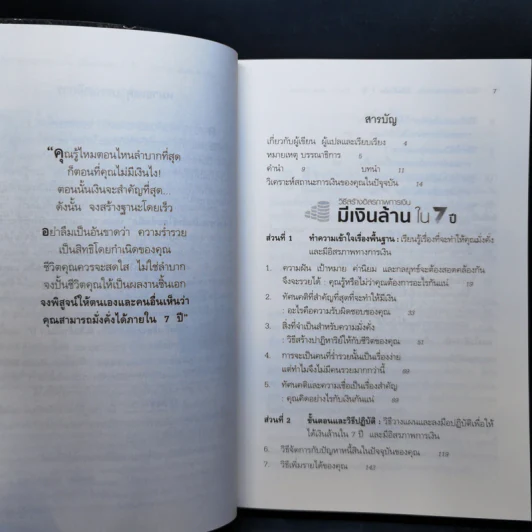 "คุณรู้ไหมตอนไหนลำบากที่สุด
ก็ตอนที่คุณไม่มีเงินไง!
ตอนนั้นเงินจะสำคัญที่สุด...
ดังนั้น จงสร้างฐานะโดยเร็ว
อย่าลืมเป็นอันขาดว่า ความร่ำรวย
เป็นสิทธิโดยกำเนิดของคุณ
ชีวิตคุณควรจะสดใส ไม่ใช่ลำบาก
จงปั้นชีวิตคุณให้เป็นผลงานชิ้นเอก
จงพิสูจน์ให้ตนเองและคนอื่นเห็นว่า
คุณสามารถมั่งคั่งได้ภายใน 7 ปี"
7
สารบัญ
เกี่ยวกับผู้เขียน ผู้แปลและเรียบเรียง 4
หมายเหตุ บรรณาธิการ 5
คำนำ 9 บทนำ 11
วิเคราะห์สถานะการเงินของคุณในปัจจุบัน 14
วิธีสร้างอิสรภาพการเงิน
มีเงินล้าน ใน 7 ปี
ส่วนที่ 1 ทำความเข้าใจเรื่องพื้นฐาน : เรียนรู้เรื่องที่จะทำให้คุณมั่งคั่ง
และมีอิสรภาพทางการเงิน
1. ความฝัน เป้าหมาย ค่านิยม และกลยุทธ์จะต้องสอดคล้องกัน
จึงจะรวยได้ : คุณรู้หรือไม่ว่าคุณต้องการอะไรกันแน่ 19
2. ทัศนคติที่สำคัญที่สุดที่จะทำให้มีเงิน
: อะไรคือความรับผิดชอบของคุณ
3. สิ่งที่จำเป็นสำหรับความมั่งคั่ง
: วิธีสร้างปาฏิหาริย์ให้กับชีวิตของคุณ
4. การจะเป็นคนที่ร่ำรวยนั้นเป็นเรื่องง่าย
แต่ทำไมจึงไม่มีคนรวยมากกว่านี้
5. ทัศนคติและความเชื่อเป็นเรื่องสำคัญ
: คุณคิดอย่างไรกับเงินกันแน่
ส่วนที่ 2 ขั้นตอนและวิธีปฏิบัติ : วิธีวางแผนและลงมือปฏิบัติเพื่อให้
ได้เงินล้านใน 7 ปี และมีอิสรภาพการเงิน
6. วิธีจัดการกับปัญหาหนี้สินในปัจจุบันของคุณ 119
7. วิธีเพิ่มรายได้ของคุณ 142